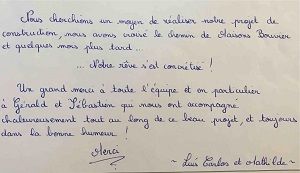 Nous cherchions un moyen de réaliser notre projet de
construction, nous avons croisé le chemin de Maisons Bouvier
et quelques mois plus tard ...
... Notre rêve s'est concrétisé !
Un grand merci à toute l'équipe et en particulier
à Gérald et Sébastien qui nous ont accompagné
chaleureusement tout au long de ce beau projet, et toujours
dans la bonne humeur !
Merci
~ Luis Carlos et Mathilde ~